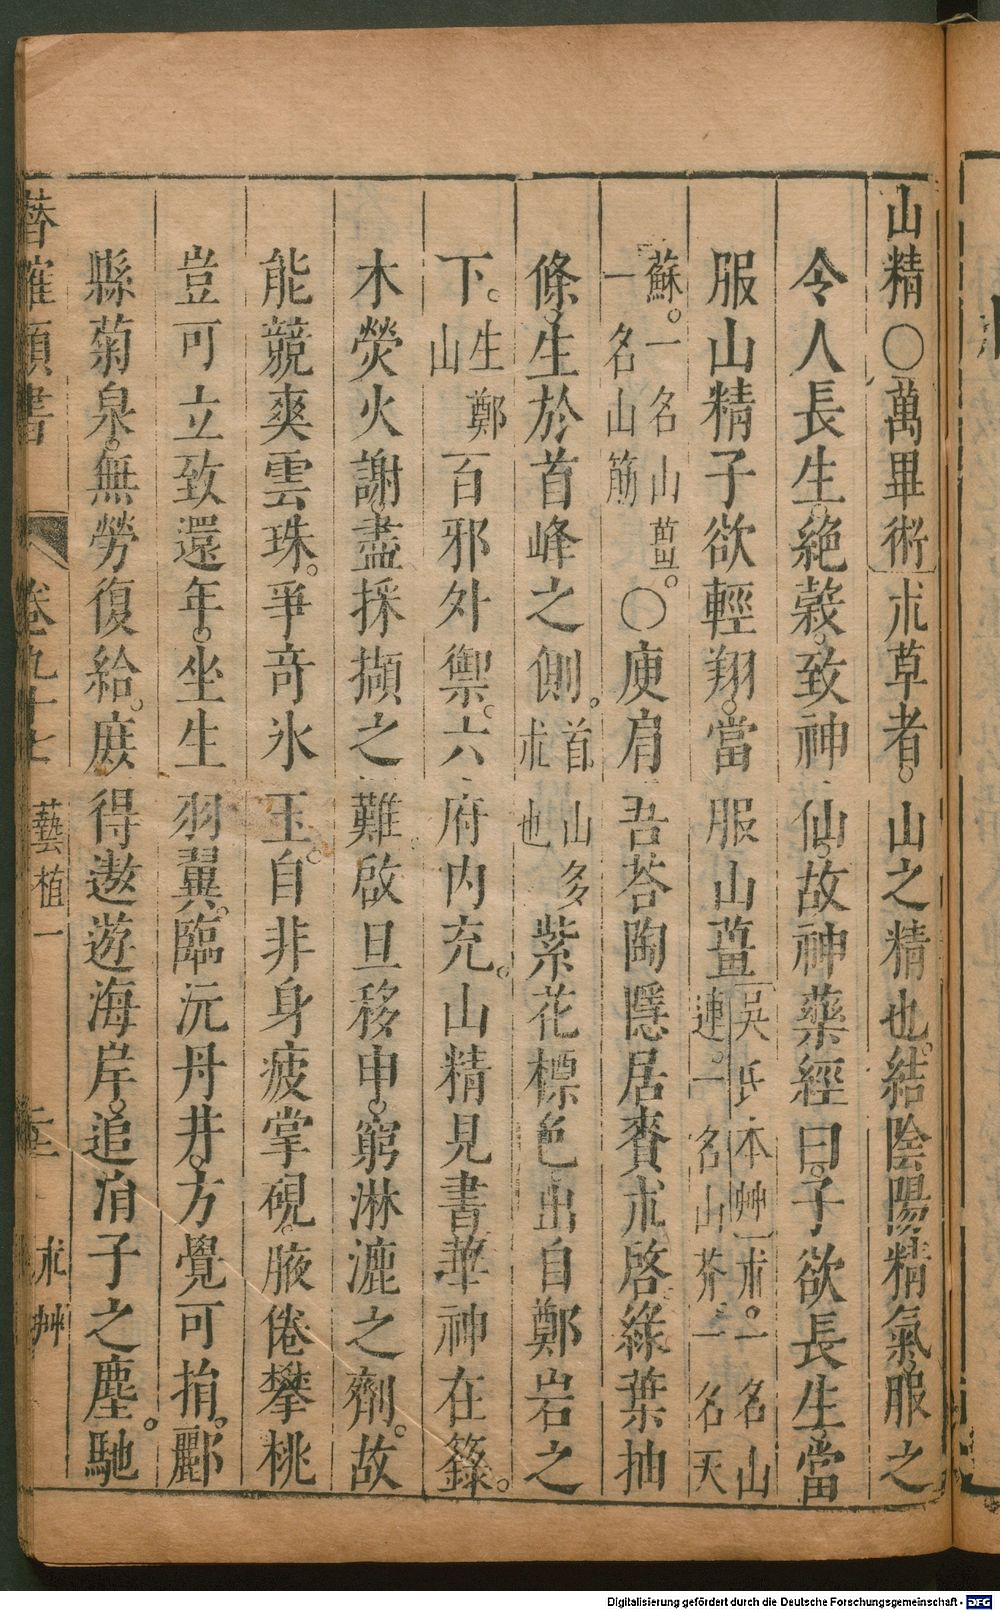 山精○萬畢術朮草者。山之精也。結陰陽精氣。服之
令人長生。絕穀。致神仙。故神藥經曰。子欲長生。當
服山精。子欲輕翔。當服山薑吳氏本艸朮。一名山
連。一名山芥。一名天
蘇。一名山薑。
一名山筋○庾肩吾荅陶隱居賚朮啓綠葉抽
條。生於首峰之側。首山多
朮也紫花標色出自鄭岩之
下。生鄭
山百邪外禦。六府内充。山精見書華神在籙。
木熒火謝。盡採擷之難啟旦移申。窮淋漉之劑。故
能競爽雲珠。爭竒氷玉。自非身疲掌硯。腋倦攀桃
豈可立致還年。坐生羽翼。臨沅丹井。方覺可捐。酈
縣菊泉。無勞復給。庶得遨遊海岸。追涓子之塵。馳
卷九十七 藝植一 朮艸
Digitalisierung gefördert durch die Deutsche Forschungsgemeinschaft - DFG